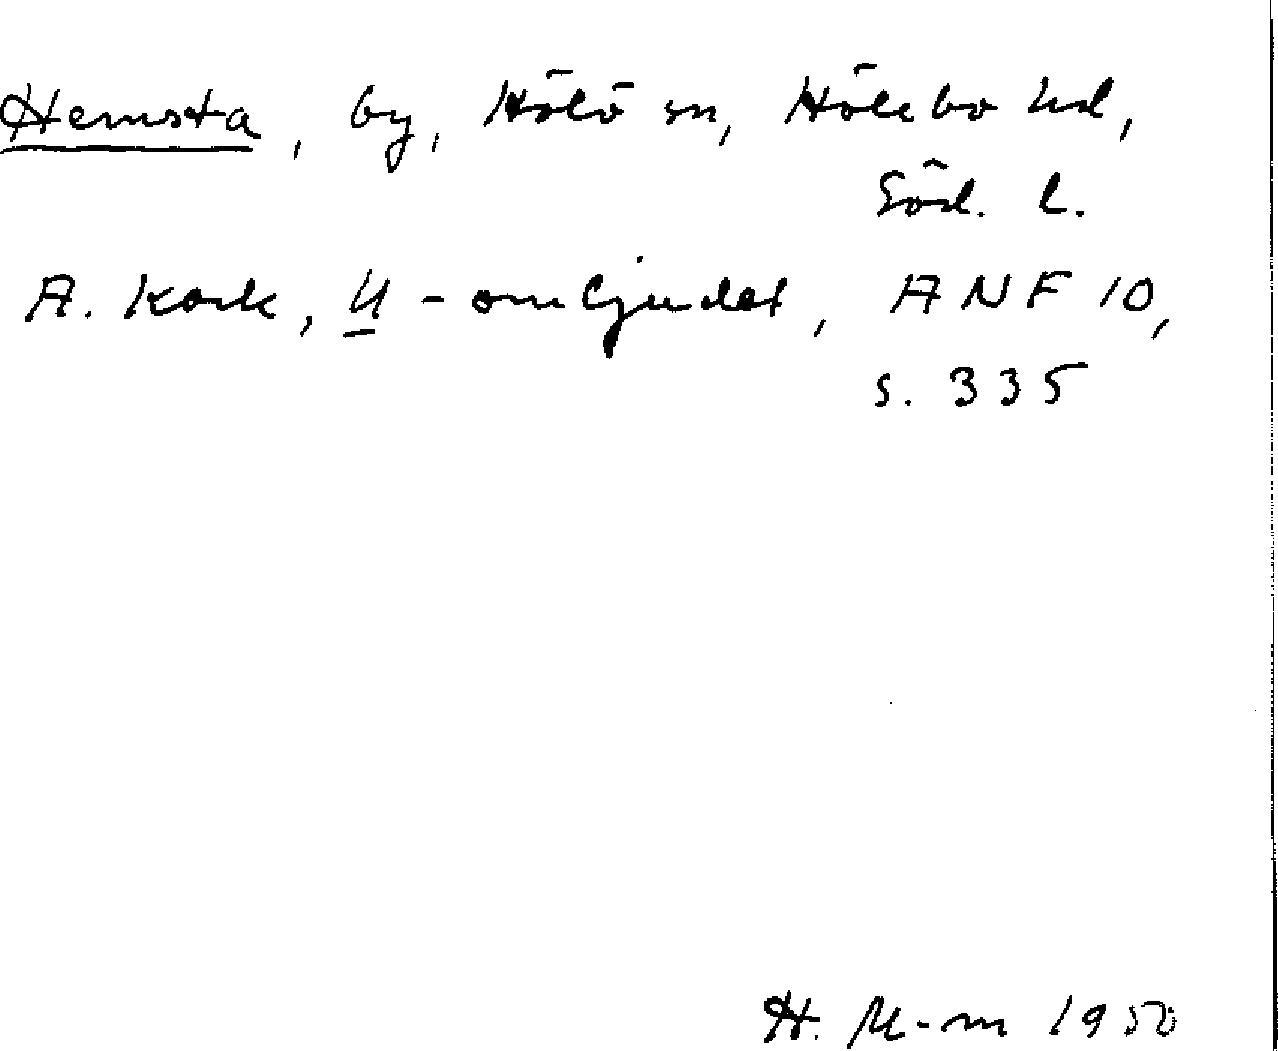 Hemsta, by, Hölö sn, Hölebo hd,
Söd. l.
A. Kock, U-omljudet, ANF 10,
s. 335
H. M-m 1950